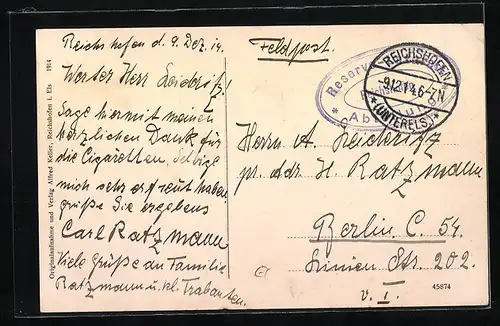 Reichshofen d. 9. Dez. 14
Feldpost.
Werter Herr
Sage hiermit meinen
herzlichen Dank für
die Cigaretten, Selbige
mich sehr erfreut haben
grüße Sie ergebens
Carl Ratzmann
Viele Grüße an Familie
Ratzmann u. kl. Trabanten.
Herrn A.
pr. adr. H. Ratzmann
Berlin C. 54.
Linien Str. 202.
v. I.
REICHSHOFEN
9.12.14. 6-7N
*(UNTERELS.)*
Reserve
Originalaufnahme und Verlag Alfred Keller, Reichshofen i. Els 1914
45874